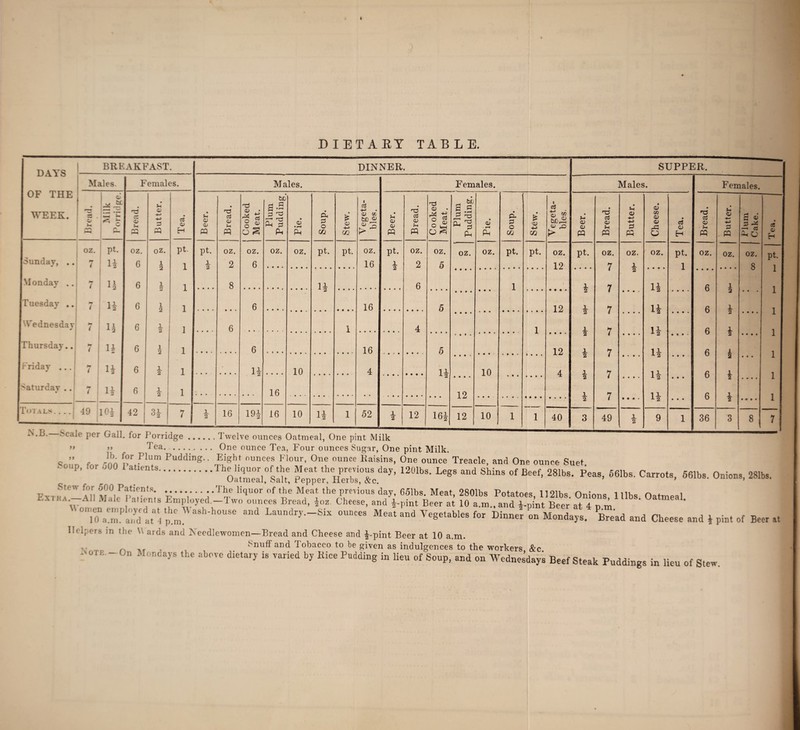 DIETARY TABLE.
DAYS OF THE WEEK. | BREAKFAST. | DINNER. | SUPPER.
Males. | Females. | Males. | Females. | Males. | Females.
Bread. | Milk Porridge. | Bread. | Butter. | Tea. | Beer. | Bread. | Cooked Meat. | Plum Pudding. | Pie. | Soup. | Stew. | Vegetables. | Beer. | Bread. | Cooked Meat. | Plum Pudding. | Pie. | Soup. | Stew. | Vegetables. | Beer. | Bread. | Butter. | Cheese. | Tea. | Bread. | Butter. | Plum Cake. | Tea.
oz. | pt. | oz. | oz. | pt. | pt. | oz. | oz. | oz. | oz. | pt. | pt. | oz. | pt. | oz. | oz. | oz. | oz. | pt. | pt. | oz. | pt. | oz. | oz. | oz. | pt. | oz. | oz. | oz. | pt.
Sunday, .. | 7 | 1½ | 6 | ½ | 1 | ½ | 2 | 6 | .... | .... | .... | .... | 16 | ½ | 2 | 5 | .... | .... | .... | .... | 12 | .... | 7 | ½ | .... | 1 | .... | .... | 8 | 1
Monday .. | 7 | 1½ | 6 | ½ | 1 | .... | 8 | .... | .... | .... | 1½ | .... | .... | .... | 6 | .... | .... | .... | 1 | .... | .... | ½ | 7 | .... | 1½ | .... | 6 | ½ | .... | 1
Tuesday .. | 7 | 1½ | 6 | ½ | 1 | .... | .... | 6 | .... | .... | .... | .... | 16 | .... | .... | 5 | .... | .... | .... | .... | 12 | ½ | 7 | .... | 1½ | .... | 6 | ½ | .... | 1
Wednesday | 7 | 1½ | 6 | ½ | 1 | .... | 6 | .... | .... | .... | .... | 1 | .... | .... | 4 | .... | .... | .... | .... | 1 | .... | ½ | 7 | .... | 1½ | .... | 6 | ½ | .... | 1
Thursday.. | 7 | 1½ | 6 | ½ | 1 | .... | .... | 6 | .... | .... | .... | .... | 16 | .... | .... | 5 | .... | .... | .... | .... | 12 | ½ | 7 | .... | 1½ | .... | 6 | ½ | .... | 1
Friday ... | 7 | 1½ | 6 | ½ | 1 | .... | .... | 1½ | .... | 10 | .... | .... | 4 | .... | .... | 1½ | .... | 10 | .... | .... | 4 | ½ | 7 | .... | 1½ | ... | 6 | ½ | .... | 1
Saturday .. | 7 | 1½ | 6 | ½ | 1 | .... | .... | .... | 16 | ... | ... | ... | ... | .... | .... | .... | 12 | .... | .... | .... | .... | ½ | 7 | .... | 1½ | ... | 6 | ½ | .... | 1
TOTALS.... | 49 | 10½ | 42 | 3½ | 7 | ½ | 16 | 19½ | 16 | 10 | 1½ | 1 | 52 | ½ | 12 | 16½ | 12 | 10 | 1 | 1 | 40 | 3 | 49 | ½ | 9 | 1 | 36 | 3 | 8 | 7
N.B.—Scale per Gall. for Porridge ...... Twelve ounces Oatmeal, One pint Milk
" " Tea......... One ounce Tea, Four ounces Sugar, One pint Milk.
" lb. for Plum Pudding.. Eight ounces Flour, One ounce Raisins, One ounce Treacle, and One ounce Suet.
Soup, for 500 Patients...........The liquor of the Meat the previous day, 120lbs. Legs and Shins of Beef, 28lbs. Peas, 56lbs. Carrots, 56lbs. Onions, 28lbs.
Oatmeal, Salt, Pepper, Herbs, &c.
Stew for 500 Patients. ..........The liquor of the Meat the previous day, 65lbs. Meat, 280lbs Potatoes, 112lbs. Onions, 11lbs. Oatmeal.
EXTRA.—All Male Patients Employed.—Two ounces Bread, ½oz. Cheese, and ½-pint Beer at 10 a.m., and ½-pint Beer at 4 p.m.
Women employed at the Wash-house and Laundry.—Six ounces Meat and Vegetables for Dinner on Mondays. Bread and Cheese and ½ pint of Beer at
10 a.m. and at 4 p.m.
Helpers in the Wards and Needlewomen—Bread and Cheese and ½-pint Beer at 10 a.m.
Snuff and Tobacco to be given as indulgences to the workers, &c.
NOTE.—On Mondays the above dietary is varied by Rice Pudding in lieu of Soup, and on Wednesdays Beef Steak Puddings in lieu of Stew.